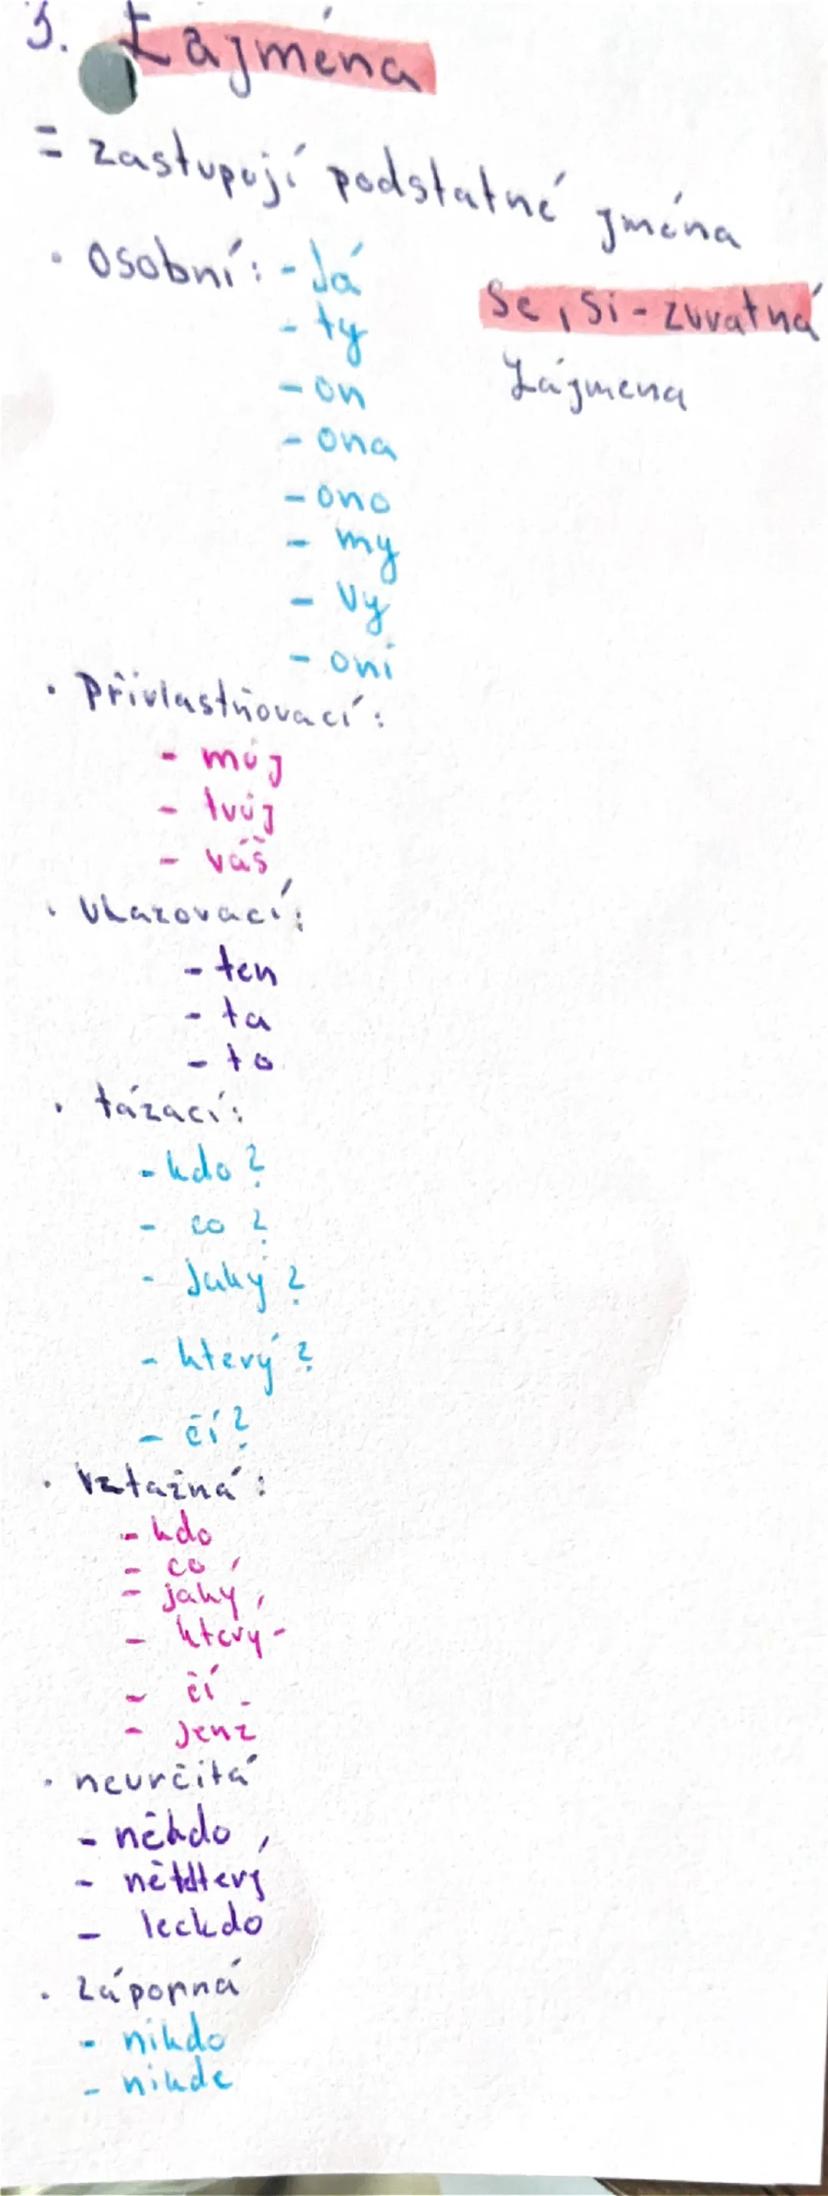 3. Zájména
= zastupují podstatné jména
• osobní: - Já
- ty
- on
- ona
- ono
- my
- vy
- oni
se, si - zvratná
Zájmena
• Přivlastňovací:
- můj
- tvůj
- váš
• Ukazovací:
- ten
- ta
- to
• tázací:
- kdo?
- co?
- Jaký?
- který?
- čí?
• Vztažná:
- kdo
- co
- jaký
- který
- čí
- jenž
• neurčitá
- někdo
- leckdo
• Záporná
- nikdo
- nikde